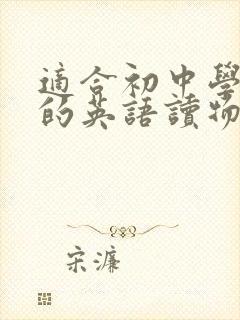 適合初中學
的英語讀物
宋濂